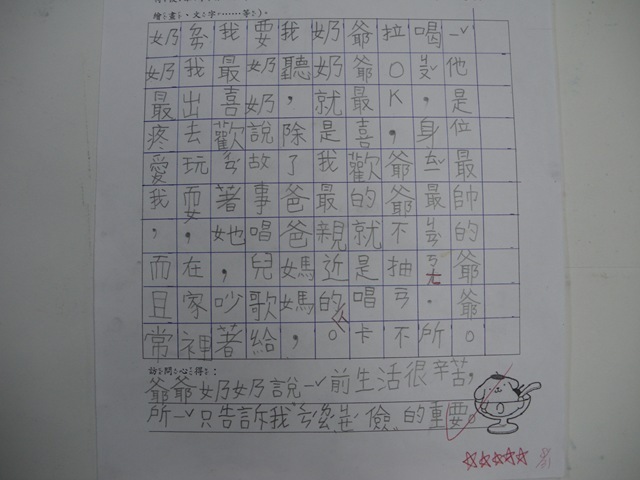 繪畫、文字……等)。
ㄧˇ他是位最帥的爺爺。
喝ㄐㄧㄡˇ,身ㄊㄧˇ最ㄐㄧㄢˋㄎㄤ.所
拉OK,爺爺不抽ㄢ不
爺爺最喜歡的就是唱卡
奶奶就是我最親近的ㄑ。
我聽,除了爸爸媽媽,
要奶奶說故事唱兒歌給
我最喜歡著她,吵著
我出去玩耍,在家裡
奶奶最疼愛我,而且常
訪問心得:
爺爺奶奶說ㄧˇ前生活很辛苦,
所ㄧˇ只告訴我儉的重要。